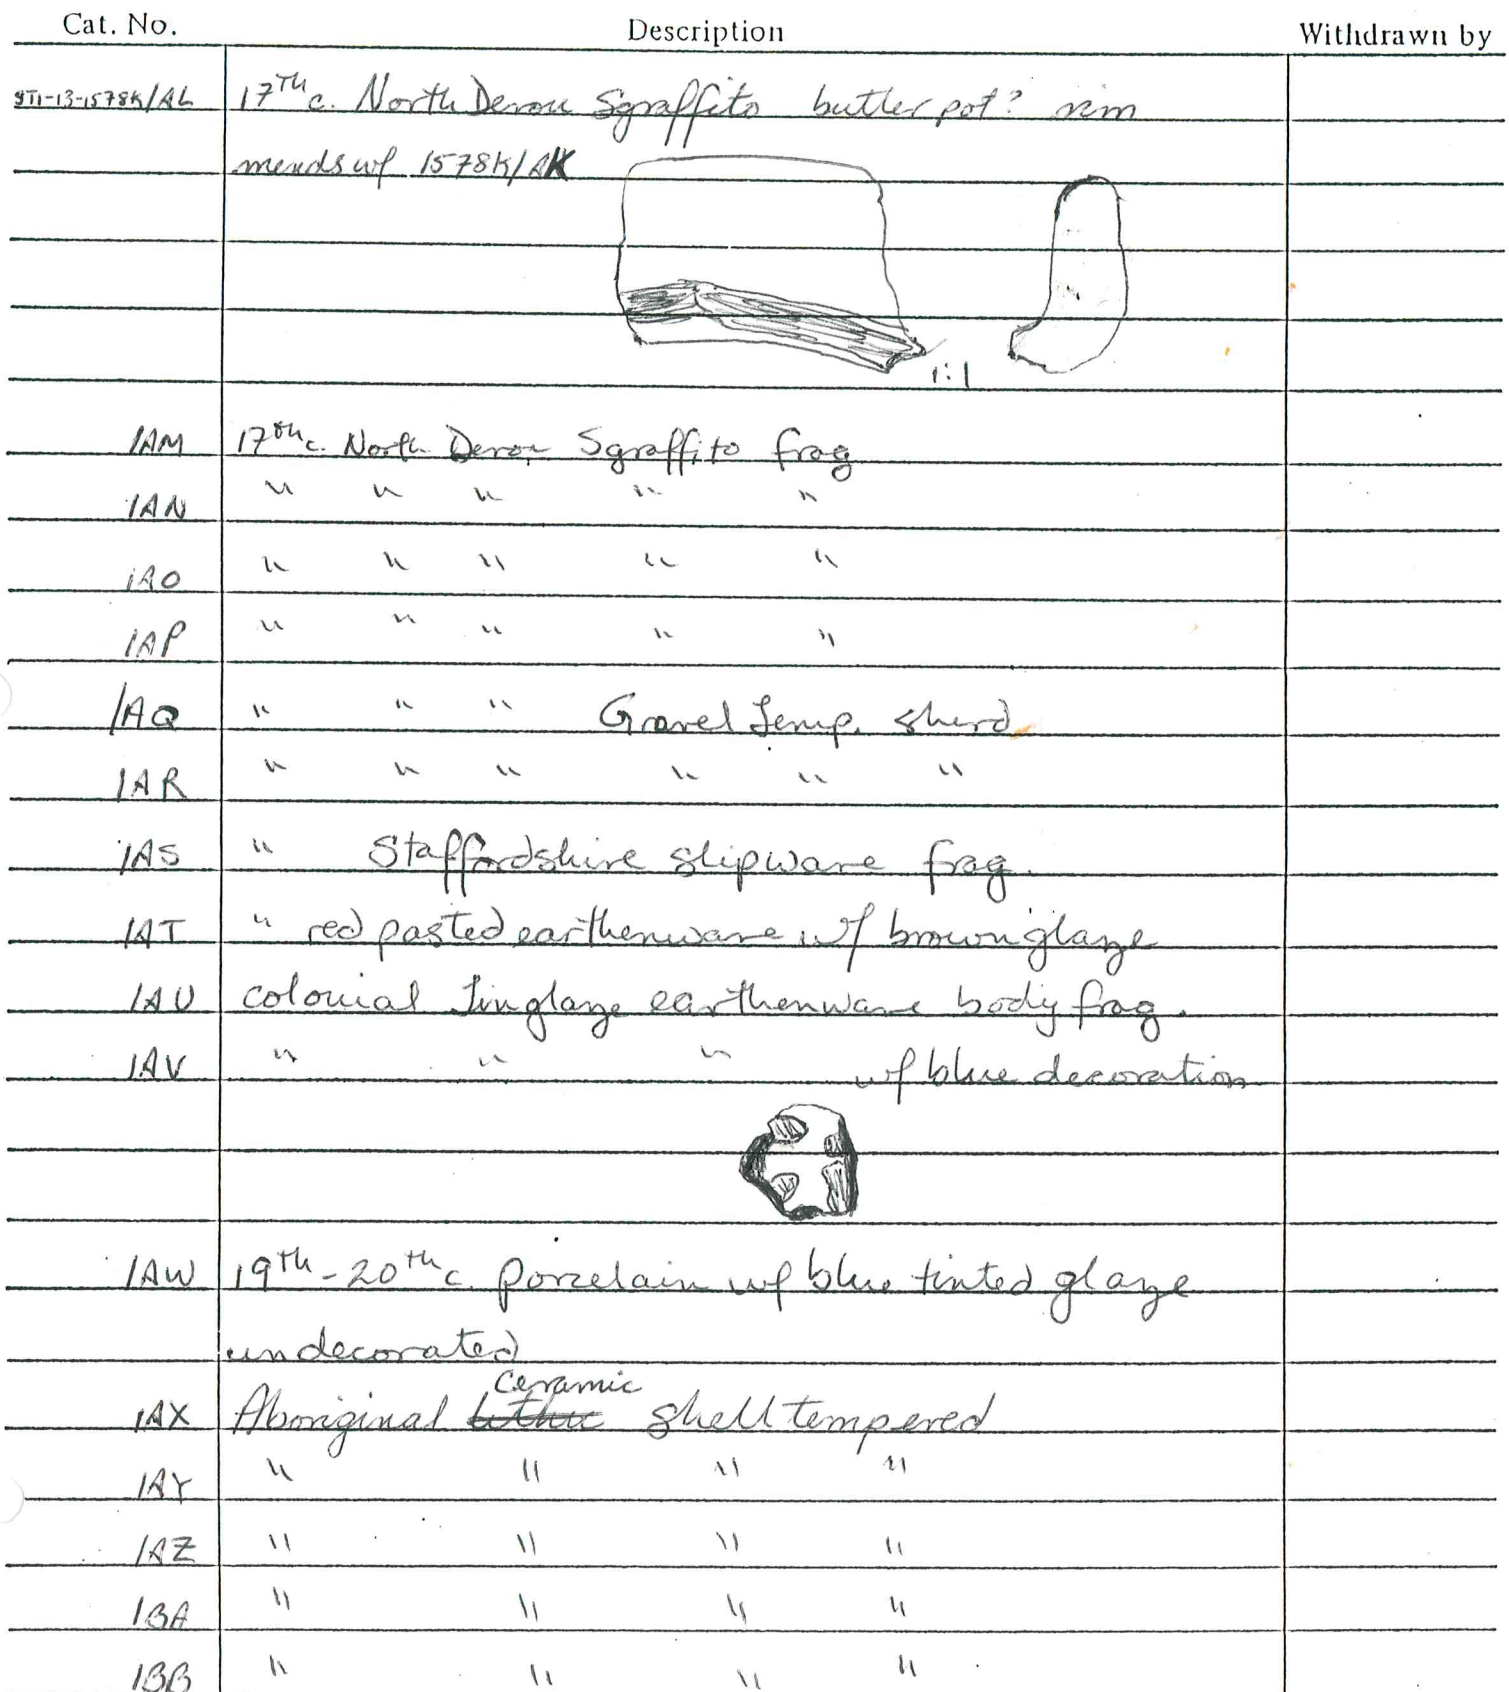 Cat. No. Description Withdrawn by
ST1-13-1578K/AL 17Th c. North Devon Sgraffito butter pot? rim
mends w/ 1578K/AK
1:1
/AM 17th c. North Devon Sgraffito frag
/AN " " " " "
/AO " " " " "
/AP " " " " "
/AQ " " " Gravel Temp. sherd
/AR " " " " " "
/AS " Staffordshire slipware frag.
/AT " red pasted earthenware w/ brown glaze
/AU colonial Tinglaze earthenware body frag.
/AV " " " w/ blue decoration
/AW 19Th-20th c. porcelain w/ blue tinted glaze
undecorated
Ceramic
/AX Aboriginal lithic shell tempered
/AY " " " "
/AZ " " " "
/BA " " " "
/BB " " " "